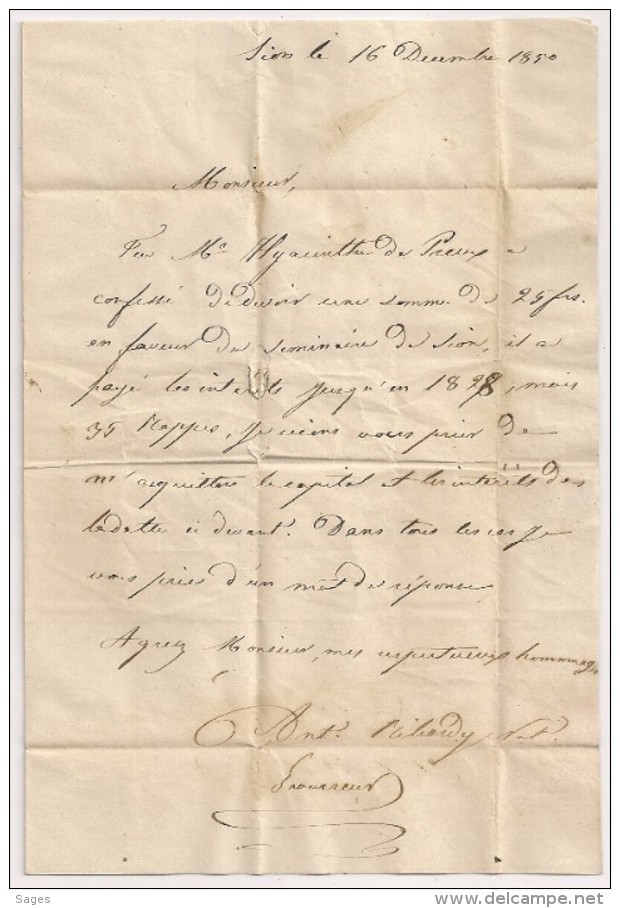 Sion le 16 Decembre 1850
Monsieur,
Feu Mr Hyacinthe de Preux a
confessé de devoir une somme de 25 frs.
en faveur du seminaire de Sion, il a
payé les interets jusqu'en 1828, mais
35 Rappes, Je viens vous prier de
m'acquitter le capital et les intérêts de
la dette ci devant. Dans tous les cas Je
vous pries d'un mot de réponse
Agreez Monsieur, mes respectueux hommages
Ant. Ribordy Not.
Procureur
Sages
www.delcampe.net